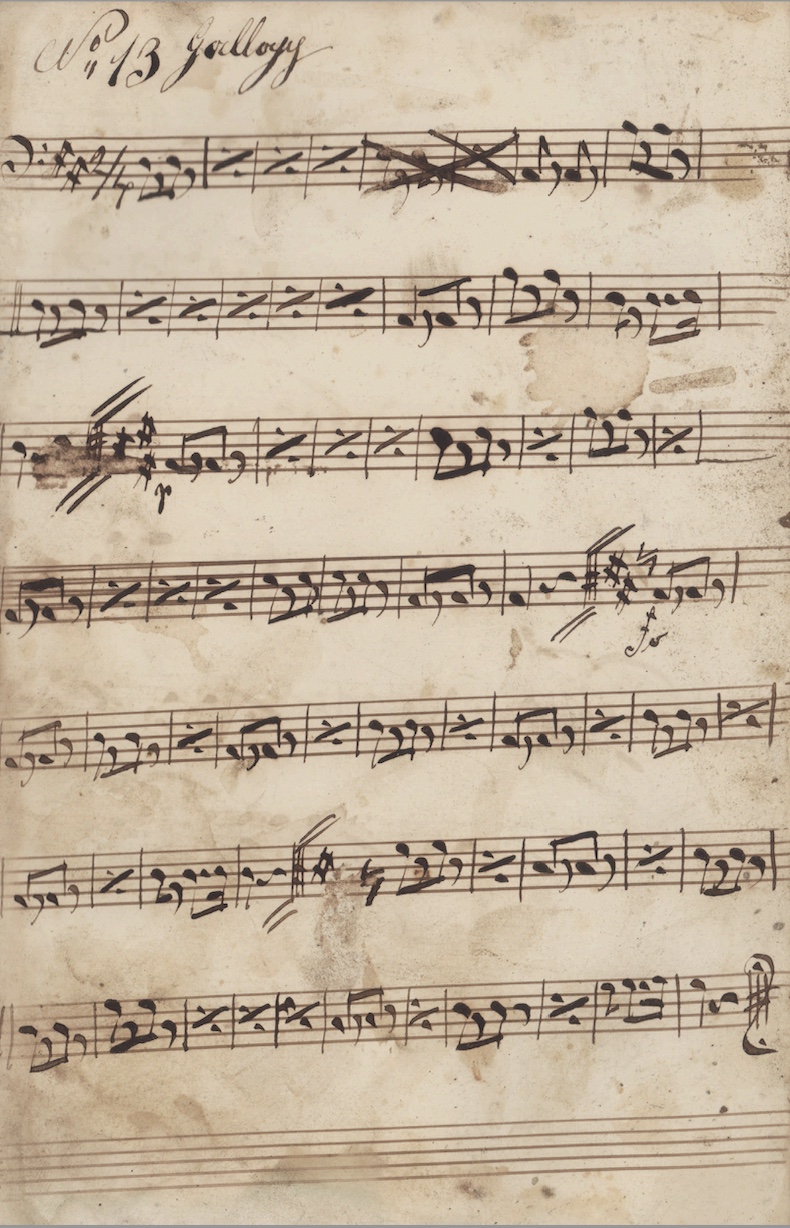 No 13 Gallopp
2/4
p
fo